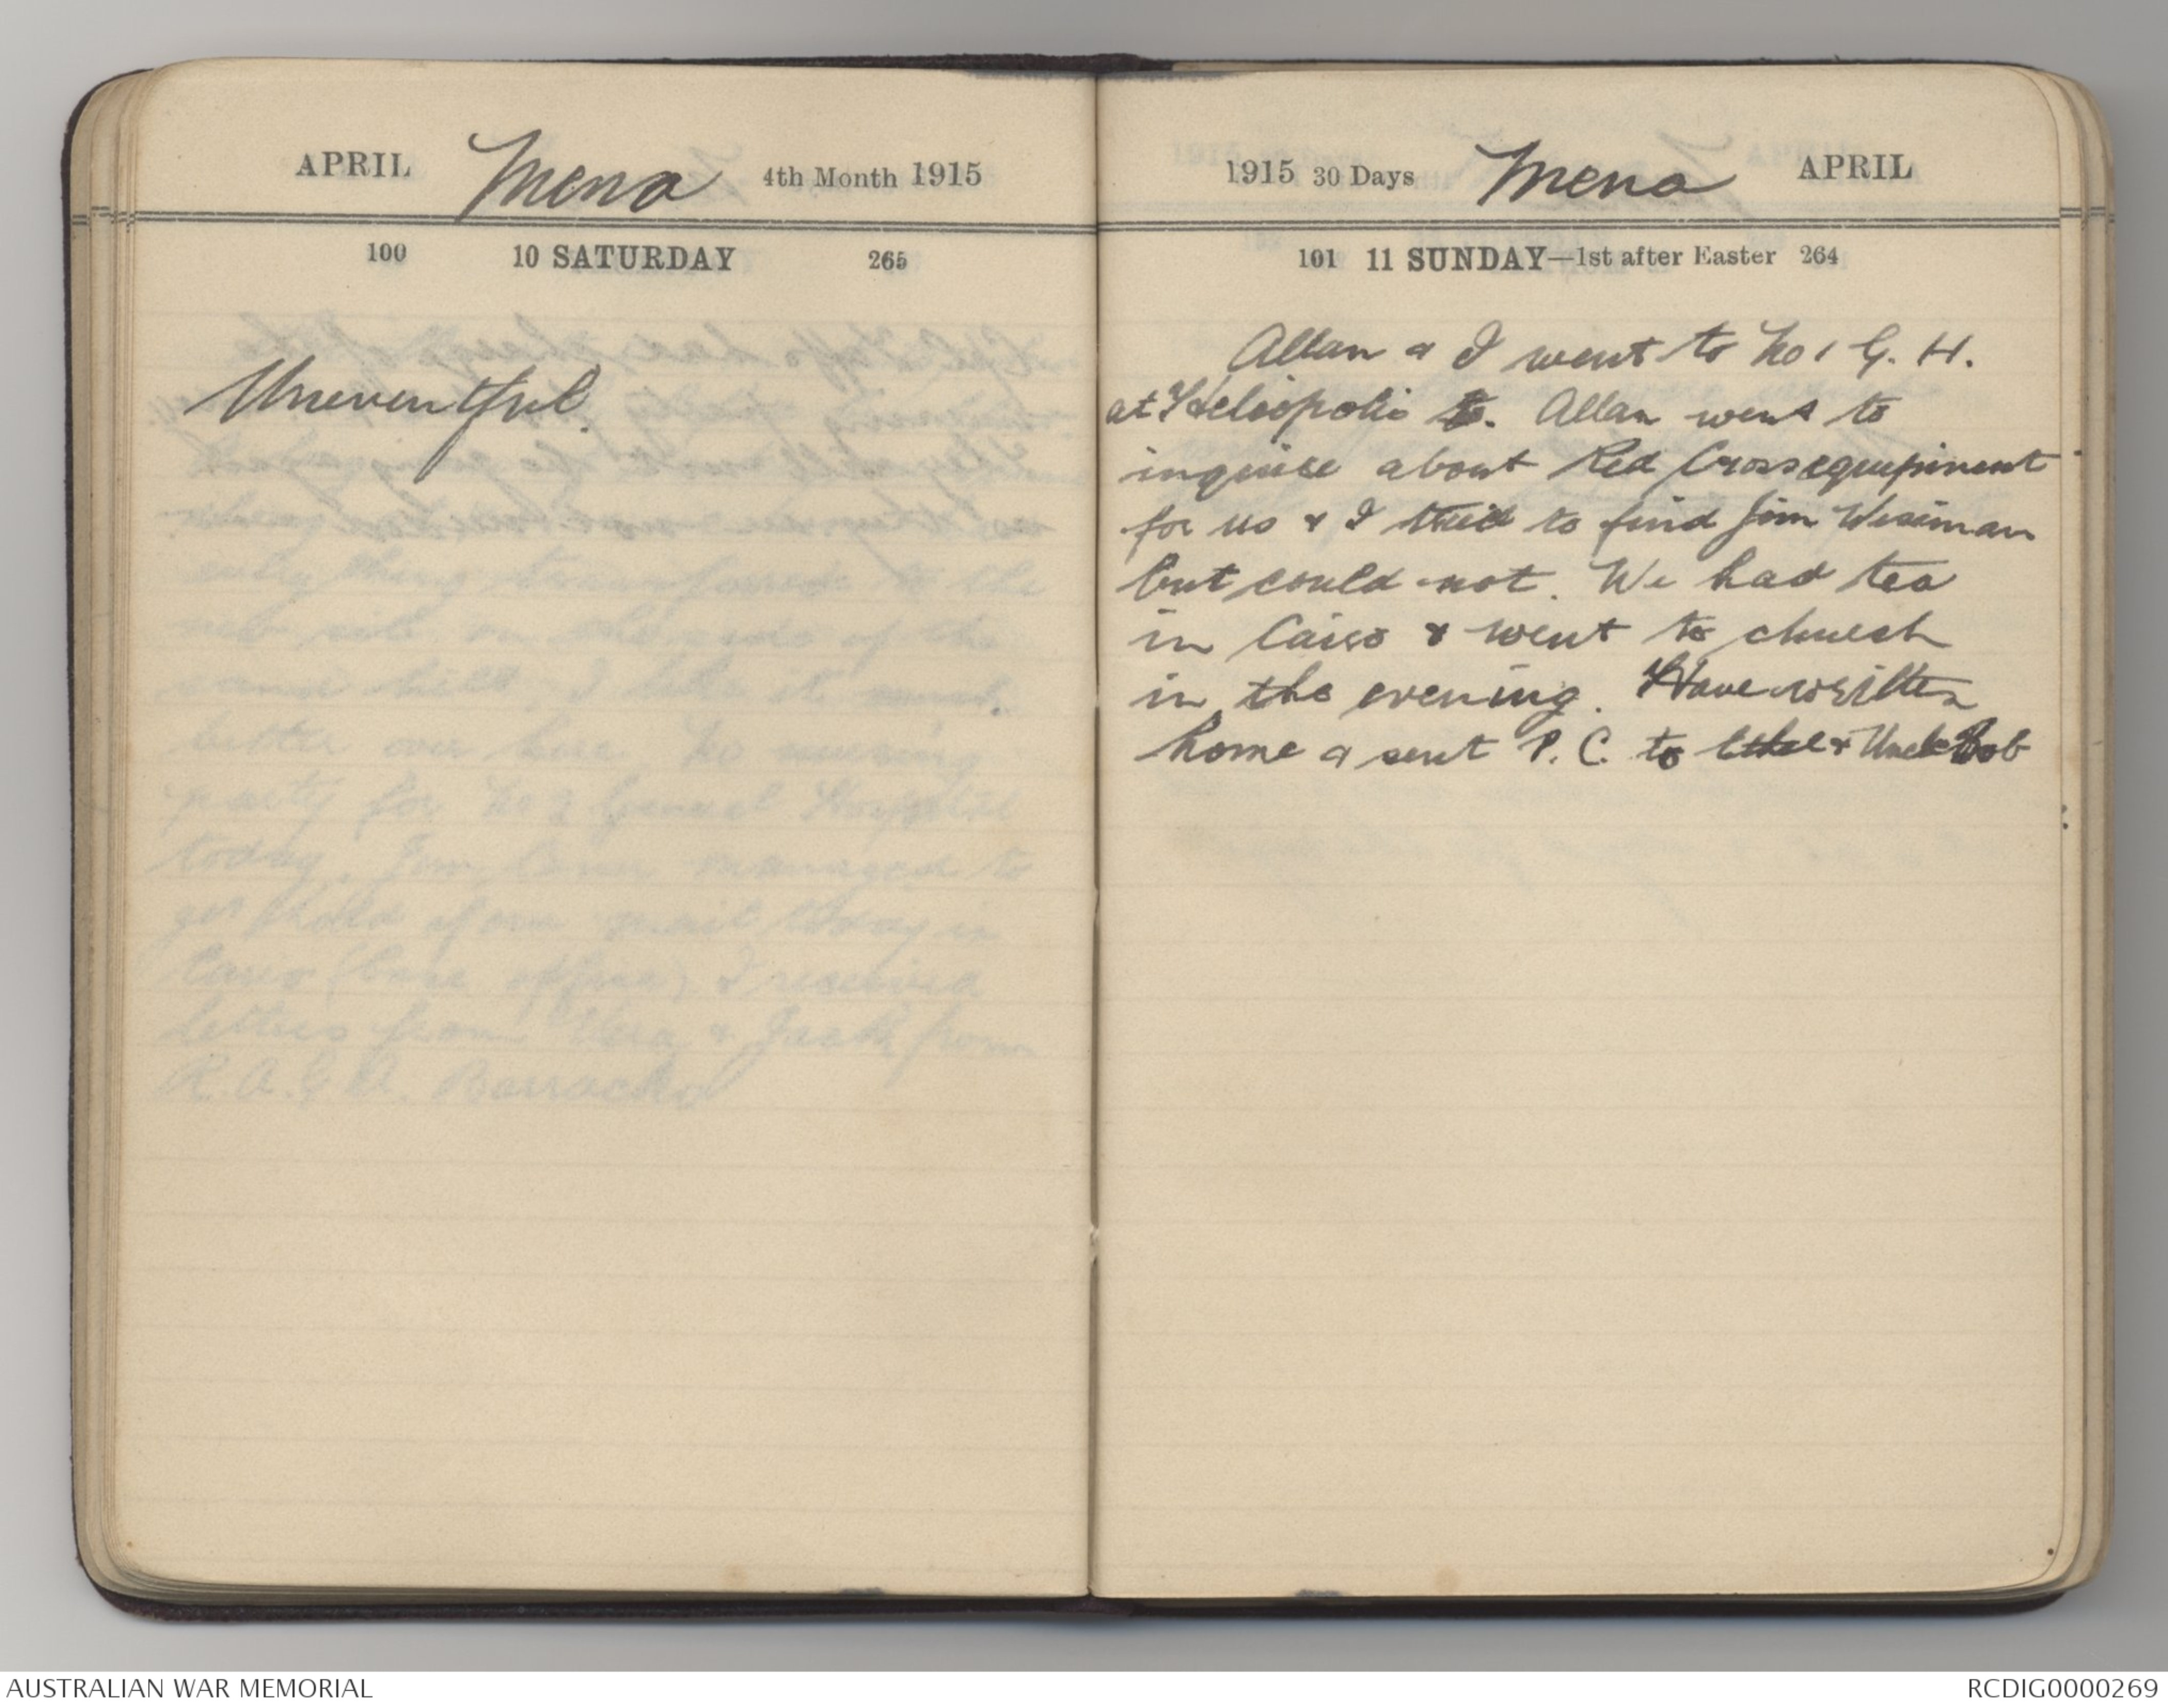 APRIL Mena 4th Month 1915
100 10 SATURDAY 265
Uneventful.
1915 30 Days Mena APRIL
101 11 SUNDAY—1st after Easter 264
Allan & I went to No 1 G. H.
at Heliopolis to. Allan went to
inquire about Red Cross equipment
for us & I tried to find Jim Wiseman
but could not. We had tea
in Cairo & went to church
in the evening. Have written
home & sent P. C. to Ethel & Uncle Bob
AUSTRALIAN WAR MEMORIAL
RCDIG0000269